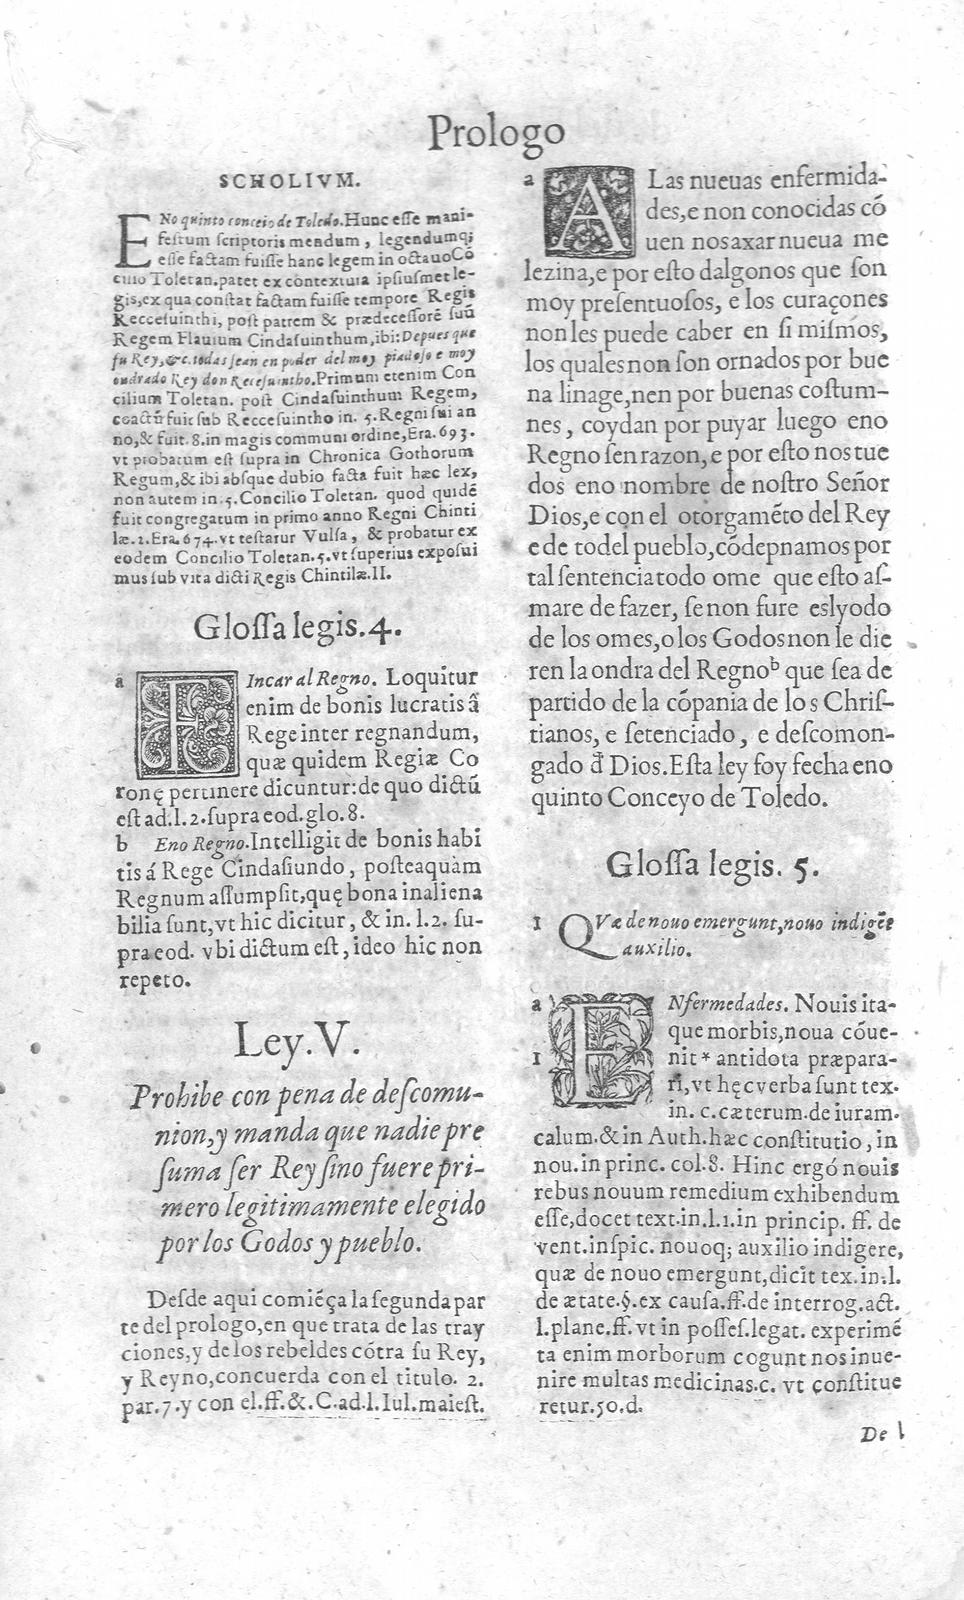 Prologo
SCHOLIVM.
ENo quinto conceio de Toledo. Hunc esse mani-
festum scriptoris mendum, legendumq;
esse factam fuisse hanc legem in octauo Cō
cilio Toletan. patet ex contextura ipsiusmet le-
gis, ex qua constat factam fuisse tempore Regis
Reccesuinthi, post patrem & prædecessorē suū
Regem Flauium Cindasuinthum, ibi: Depues que
fu Rey, &c. todas sean en poder del moy piadoso e moy
ondrado Rey don Recesuintho. Primum etenim Con
cilium Toletan. post Cindasuinthum Regem,
coactū fuit sub Reccesuintho in. 5. Regni sui an
no, & fuit. 8. in magis communi ordine, Era. 693.
vt probatum est supra in Chronica Gothorum
Regum, & ibi absque dubio facta fuit hæc lex,
non autem in. 5. Concilio Toletan. quod quidē
fuit congregatum in primo anno Regni Chinti
læ. 2. Era. 674. vt testatur Vulsa, & probatur ex
eodem Concilio Toletan. 5. vt superius exposui
mus sub vita dicti Regis Chintilæ. II.
Glossa legis. 4.
a FIncar al Regno. Loquitur
enim de bonis lucratis ā
Rege inter regnandum,
quæ quidem Regiæ Co
ronę pertinere dicuntur: de quo dictū
est ad. l. 2. supra eod. glo. 8.
b Eno Regno. Intelligit de bonis habi
tis á Rege Cindasiundo, posteaquàm
Regnum assumpsit, quę bona inaliena
bilia sunt, vt hic dicitur, & in. l. 2. su-
pra eod. vbi dictum est, ideo hic non
repeto.
Ley. V.
Prohibe con pena de descomu-
nion, y manda que nadie pre
suma ser Rey sino fuere pri-
mero legitimamente elegido
por los Godos y pueblo.
Desde aqui comiēça la segunda par
te del prologo, en que trata de las tray
ciones, y de los rebeldes cōtra su Rey,
y Reyno, concuerda con el titulo. 2.
par. 7. y con el. ff. &. C. ad. l. Iul. maiest.
a ALas nueuas enfermida-
des, e non conocidas cō
uen nos axar nueua me
lezina, e por esto dalgonos que son
moy presentuosos, e los curaçones
non les puede caber en si mismos,
los quales non son ornados por bue
na linage, nen por buenas costum-
nes, coydan por puyar luego eno
Regno sen razon, e por esto nos tue
dos eno nombre de nostro Señor
Dios, e con el otorgamēto del Rey
e de todel pueblo, cōdepnamos por
tal sentencia todo ome que esto as-
mare de fazer, se non fure eslyodo
de los omes, o los Godos non le die
ren la ondra del Regno b que sea de
partido de la cōpania de los Chris-
tianos, e setenciado, e descomon-
gado đ Dios. Esta ley foy fecha eno
quinto Conceyo de Toledo.
Glossa legis. 5.
1 QVæ de nouo emergunt, nouo indigēt
auxilio.
a ENfermedades. Nouis ita-
que morbis, noua cōue-
1 nit * antidota præpara-
ri, vt hęc verba sunt tex.
in. c. cæterum. de iuram.
calum. & in Auth. hæc constitutio, in
nou. in princ. col. 8. Hinc ergó nouis
rebus nouum remedium exhibendum
esse, docet text. in. l. 1. in princip. ff. de
vent. inspic. nouoq; auxilio indigere,
quæ de nouo emergunt, dicit tex. in. l.
de ætate. §. ex causa. ff. de interrog. act.
l. plane. ff. vt in posses. legat. experimē
ta enim morborum cogunt nos inue-
nire multas medicinas. c. vt constitue
retur. 50. d.
De l